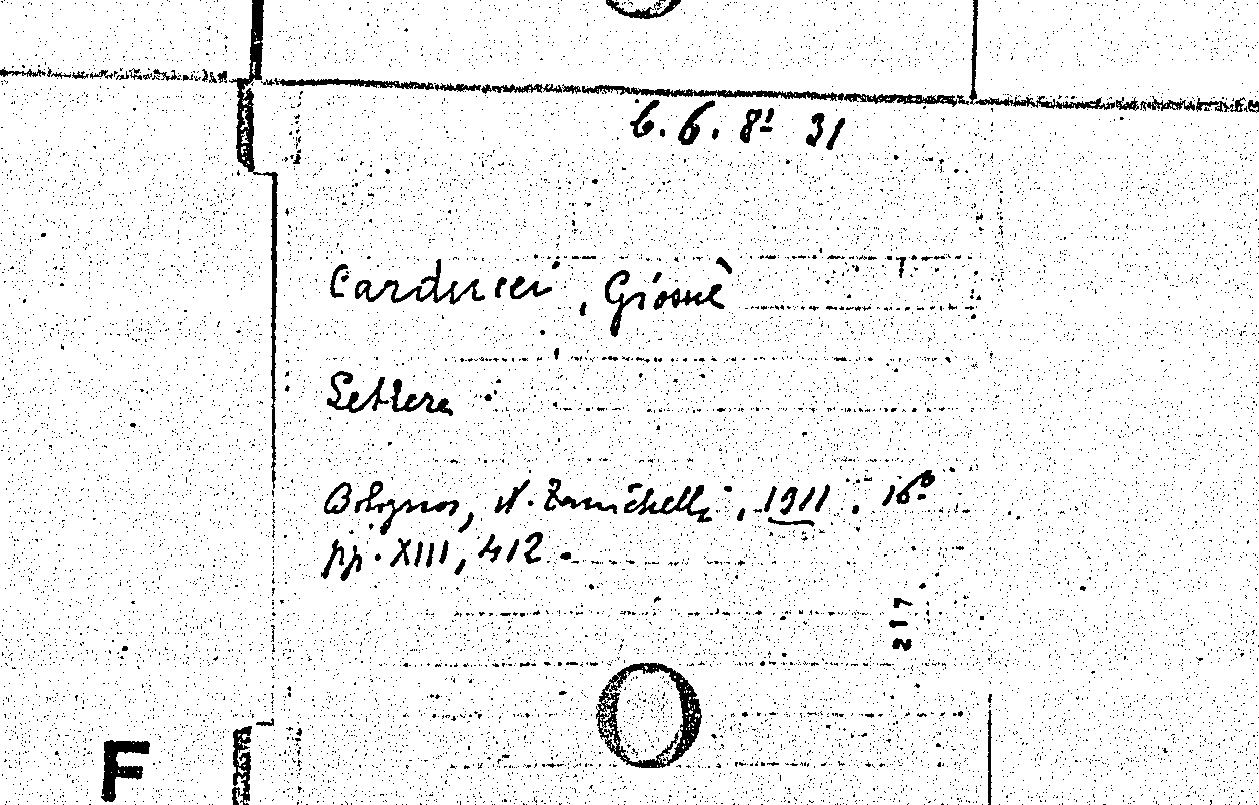 6. 6. 8¹ 31
Carducci, Giosuè
Lettere
Bologna, N. Zanichelli, 1911. 16º
pp. XIII, 412.
217
F